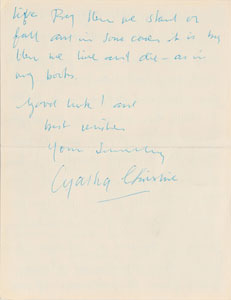 life. By them we stand or
fall and in some cases it is by
them we live and die – as in
my books.
Good luck! and
best wishes
Yours sincerely
Agatha Christie